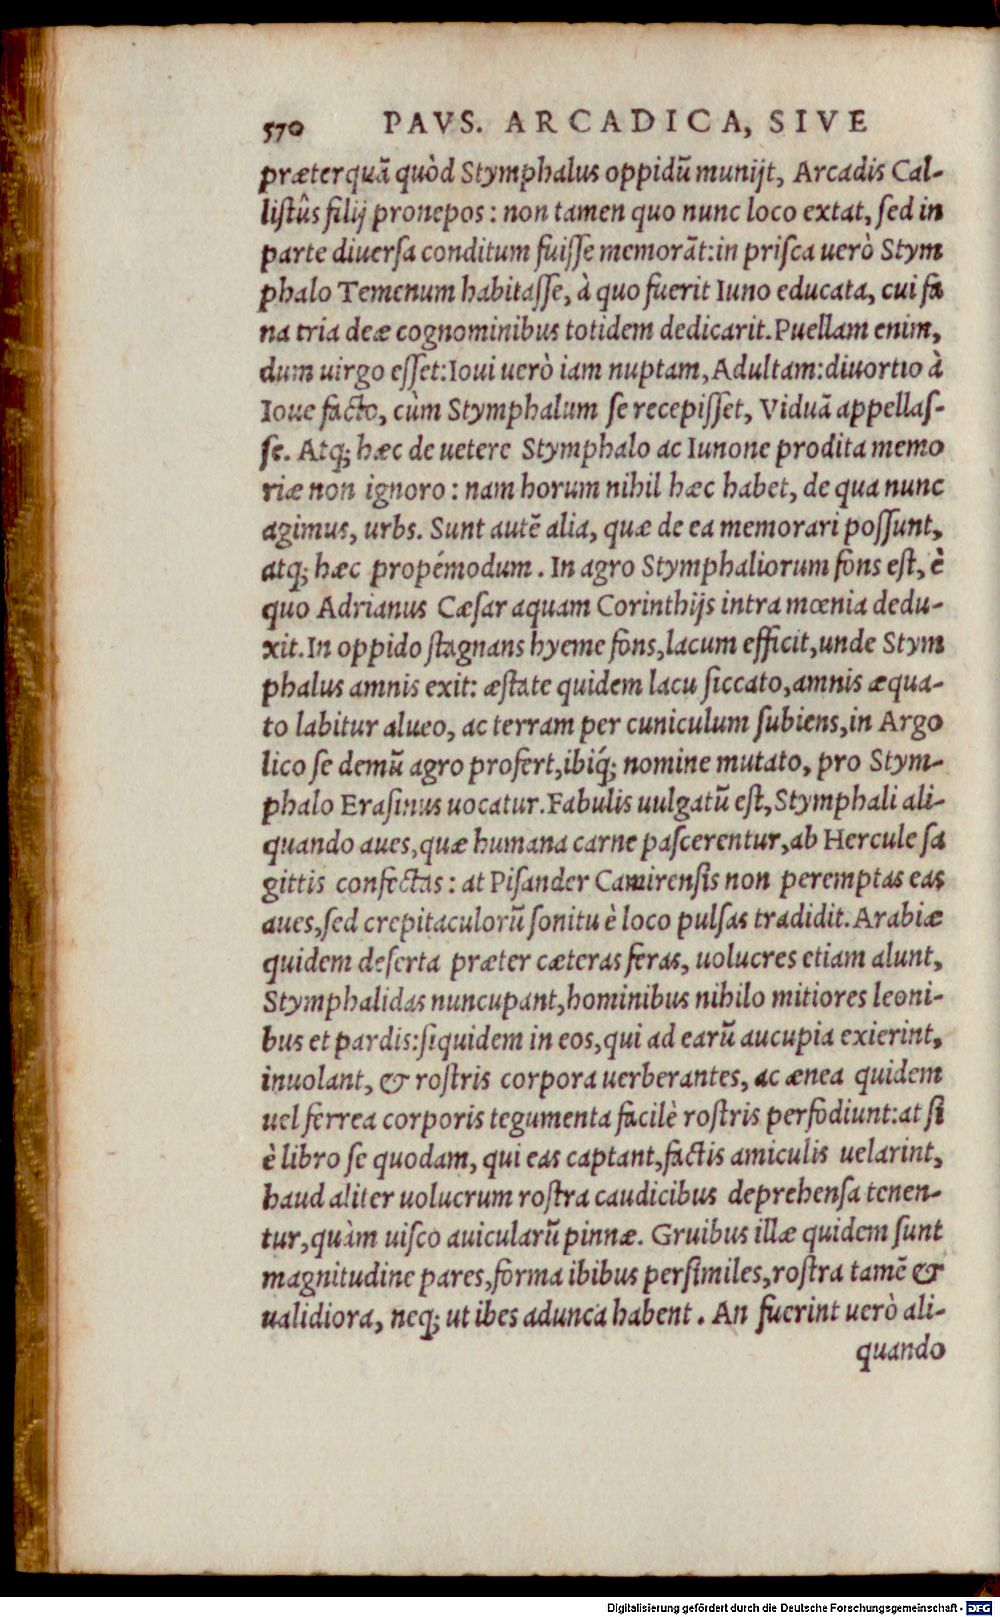 570 PAVS. ARCADICA, SIVE
præterquā quòd Stymphalus oppidū munijt, Arcadis Cal-
listûs filij pronepos: non tamen quo nunc loco extat, sed in
parte diuersa conditum fuisse memorāt: in prisca uerò Stym
phalo Temenum habitasse, à quo fuerit Iuno educata, cui fa
na tria deæ cognominibus totidem dedicarit. Puellam enim,
dum uirgo esset: Ioui uerò iam nuptam, Adultam: diuortio à
Ioue facto, cùm Stymphalum se recepisset, Viduā appellas-
se. Atq; hæc de uetere Stymphalo ac Iunone prodita memo
riæ non ignoro: nam horum nihil hæc habet, de qua nunc
agimus, urbs. Sunt autē alia, quæ de ea memorari possunt,
atq; hæc propémodum. In agro Stymphaliorum fons est, è
quo Adrianus Cæsar aquam Corinthijs intra mœnia dedu-
xit. In oppido stagnans hyeme fons, lacum efficit, unde Stym
phalus amnis exit: æstate quidem lacu siccato, amnis æqua-
to labitur alueo, ac terram per cuniculum subiens, in Argo
lico se demū agro profert, ibiq́; nomine mutato, pro Stym-
phalo Erasinus uocatur. Fabulis uulgatū est, Stymphali ali-
quando aues, quæ humana carne pascerentur, ab Hercule sa
gittis confectas: at Pisander Camirensis non peremptas eas
aues, sed crepitaculorū sonitu è loco pulsas tradidit. Arabiæ
quidem deserta præter cæteras feras, uolucres etiam alunt,
Stymphalidas nuncupant, hominibus nihilo mitiores leoni-
bus et pardis: siquidem in eos, qui ad earū aucupia exierint,
inuolant, & rostris corpora uerberantes, ac ænea quidem
uel ferrea corporis tegumenta facilè rostris perfodiunt: at si
è libro se quodam, qui eas captant, factis amiculis uelarint,
haud aliter uolucrum rostra caudicibus deprehensa tenen-
tur, quàm uisco auicularū pinnæ. Gruibus illæ quidem sunt
magnitudine pares, forma ibibus persimiles, rostra tamē &
ualidiora, neq; ut ibes adunca habent. An fuerint uerò ali-
quando
Digitalisierung gefördert durch die Deutsche Forschungsgemeinschaft - DFG